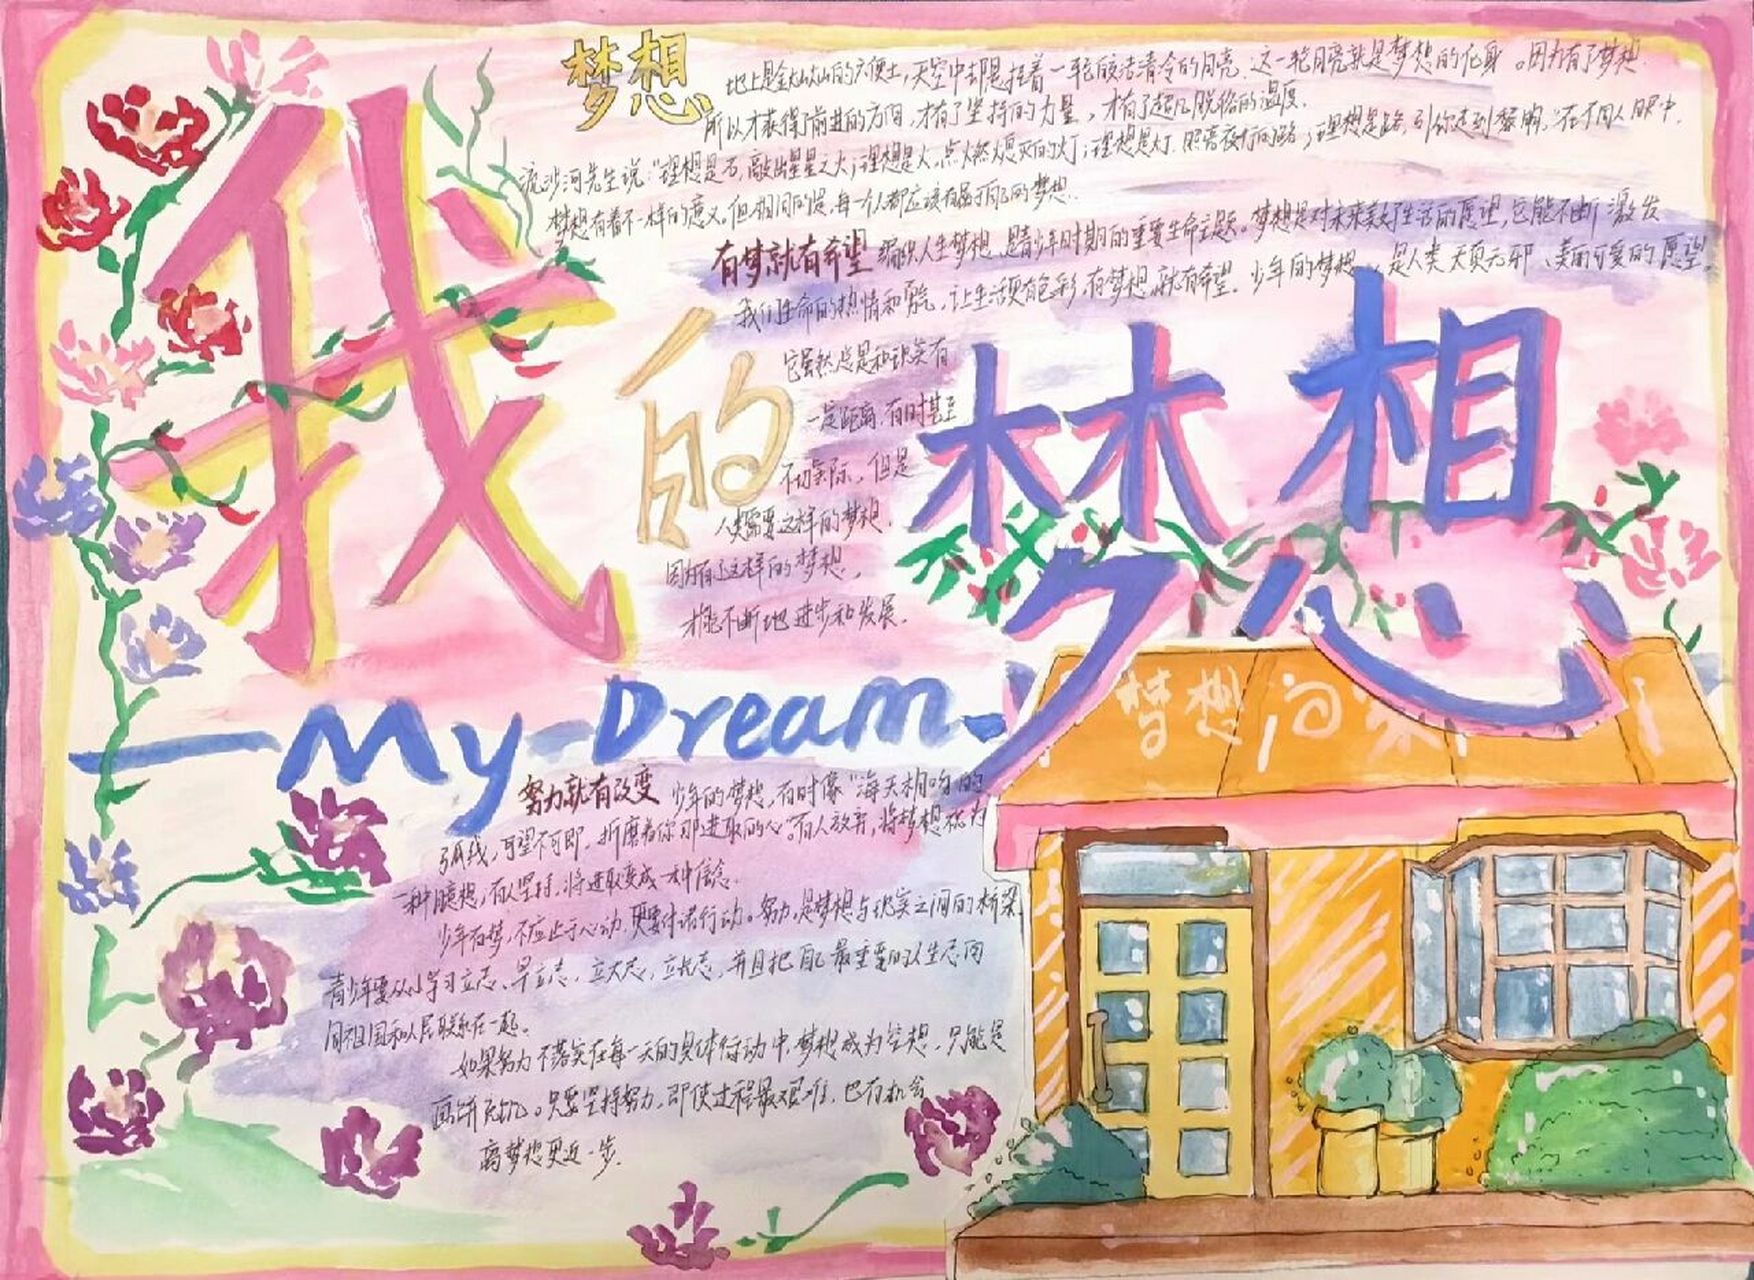 梦想
地上是金灿灿的六便士，天空中却悬挂着一轮皎洁清冷的月亮，这一轮月亮就是梦想的化身。因为有了梦想，
所以才获得了前进的方向，才有了坚持的力量，才有了超凡脱俗的温度。
流沙河先生说：“理想是石，敲出星星之火；理想是火，点燃熄灭的灯；理想是灯，照亮夜行的路；理想是路，引你走到黎明。”在不同人眼中，
梦想有着不一样的意义。但相同的是，每一个人都应该有属于自己的梦想。
有梦就有希望 编织人生梦想，是青少年时期的重要生命主题。梦想是对未来美好生活的愿望，它能不断激发
我们生命的热情和勇气，让生活更有色彩，有梦想，就有希望。少年的梦想，是人类天真无邪、美丽可爱的愿望。
它虽然总是和现实有
一定距离，有时甚至
不切实际，但是
人类需要这样的梦想，
因为有了这样的梦想，
才能不断地进步和发展。
我的梦想
My Dream
梦想
努力就有改变 少年的梦想，有时像“海天相吻的
弧线，可望不可即，折磨着你那进取的心”。有人放弃，将梦想视为
一种臆想；有人坚持，将进取变成一种信念。
少年有梦，不应止于心动，更要付诸行动。努力，是梦想与现实之间的桥梁，
青少年要从小学习立志、早立志，立大志，立长志，并且把自己最重要的人生志向
同祖国和人民联系在一起。
如果努力不落实在每一天的具体行动中，梦想成为空想，只能是
画饼充饥。只要坚持努力，即使过程艰难，也有机会
离梦想更近一步。